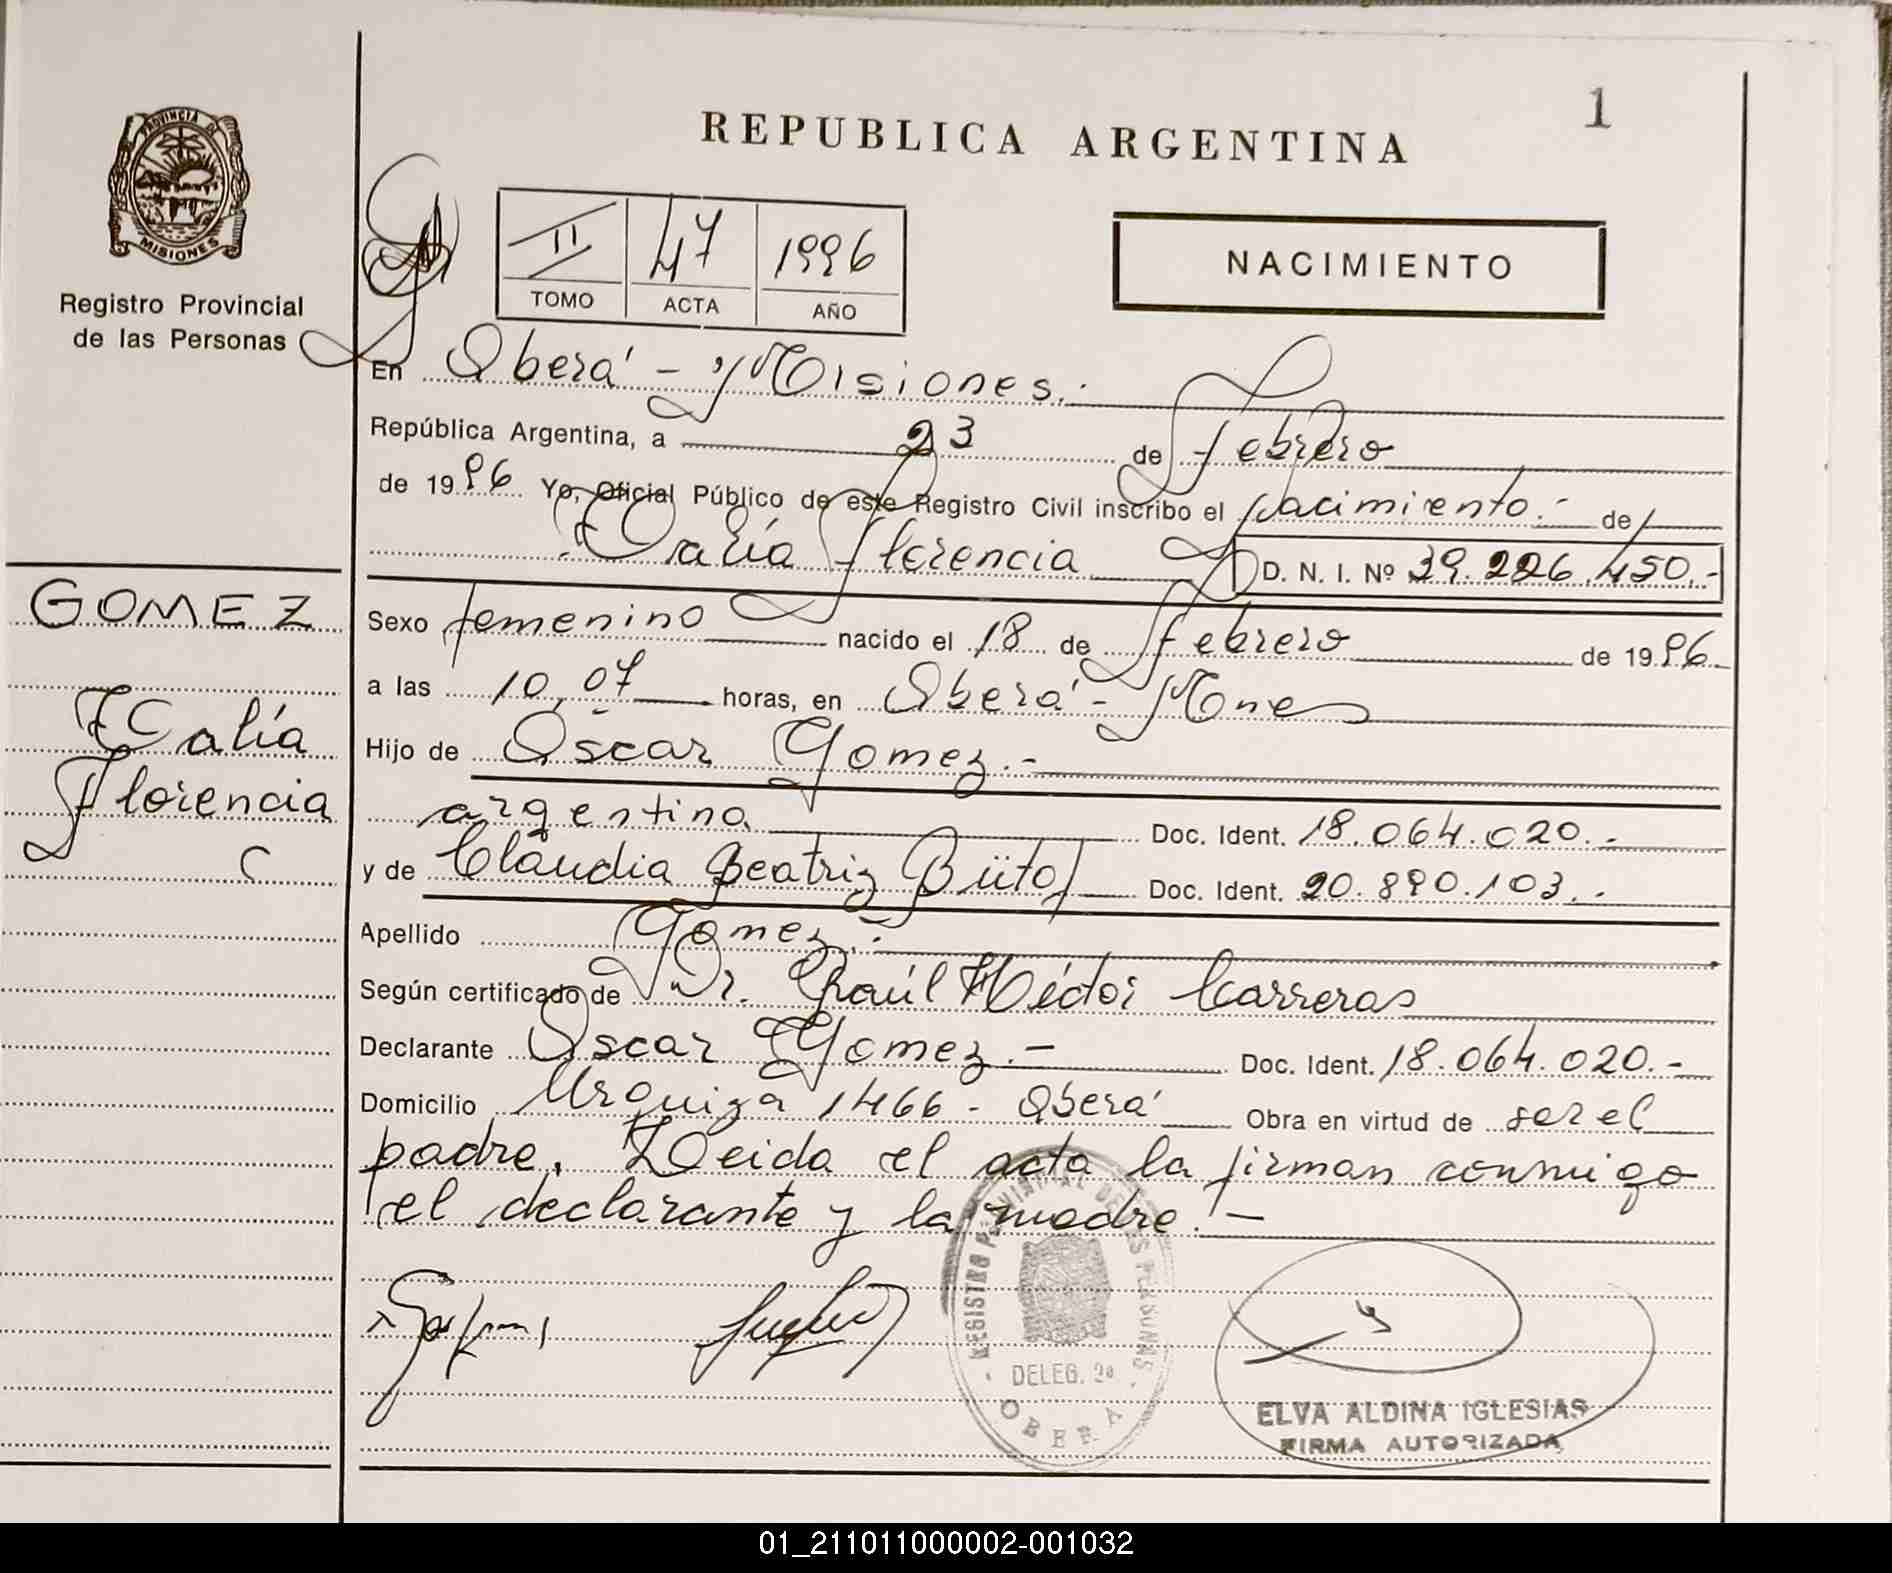 1
REPUBLICA ARGENTINA
PROVINCIA DE
MISIONES
Registro Provincial
de las Personas
II 47 1996
TOMO ACTA AÑO
NACIMIENTO
En Oberá - Misiones.-
República Argentina, a 23 de Febrero
de 1996 Yo, Oficial Público de este Registro Civil inscribo el Nacimiento.- de
Talía Florencia D. N. I. Nº 39.226.450.-
GOMEZ
Talía
Florencia
Sexo femenino nacido el 18 de Febrero de 1996.
a las 10,07 horas, en Oberá - Mnes
Hijo de Oscar Gomez.-
argentina Doc. Ident. 18.064.020.-
y de Claudia Beatriz Doc. Ident. 20.890.103.-
Apellido Gomez.-
Según certificado de Dr. Raúl Héctor Carreras
Declarante Oscar Gomez.- Doc. Ident. 18.064.020.-
Domicilio Urquiza 1466 - Oberá Obra en virtud de ser el
padre. Leida el acta la firman conmigo
el declarante y la madre.-
REGISTRO PROVINCIAL DE LAS PERSONAS
DELEG. 2a
OBERA
ELVA ALDINA IGLESIAS
FIRMA AUTORIZADA
01_211011000002-001032